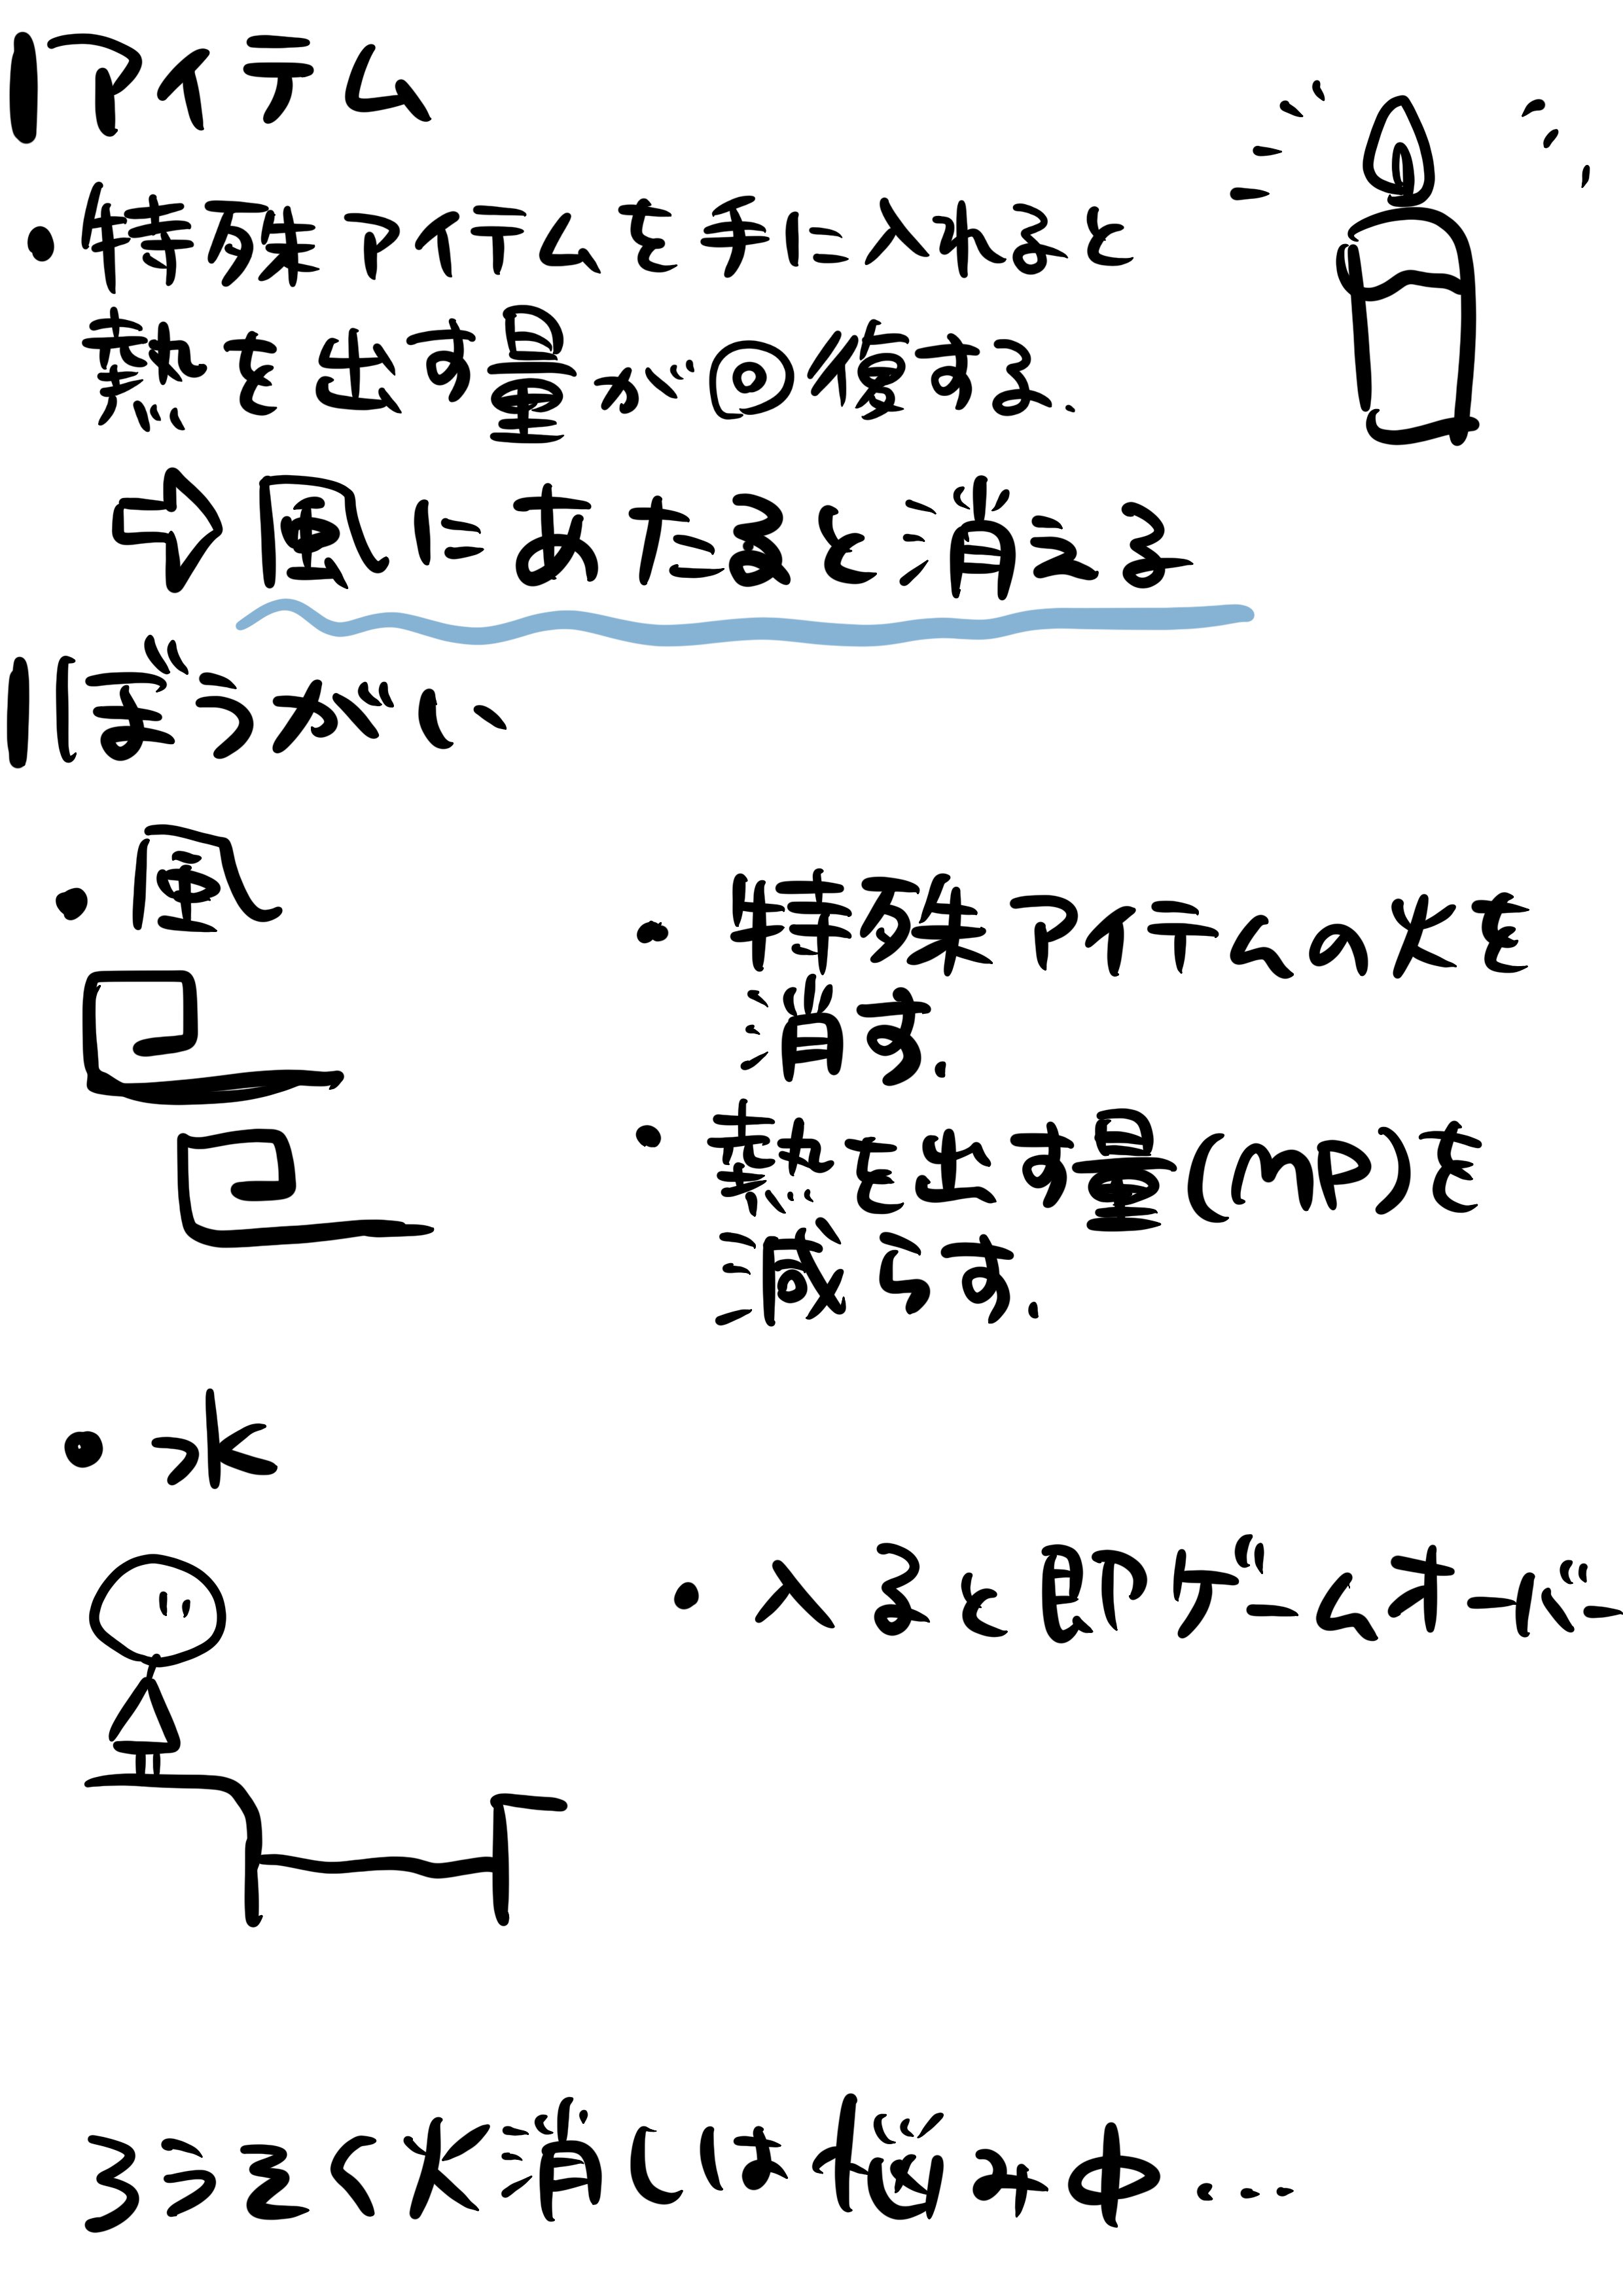 アイテム
・特殊アイテムを手に入れると
熱を出す量が回復する.
⇨風にあたると消える
ぼうがい
・風
・特殊アイテムの火を
消す.
・熱を出す量(MP)を
減らす.
・水
・入ると即ゲームオーバー
ろうそく火消しは悩み中...